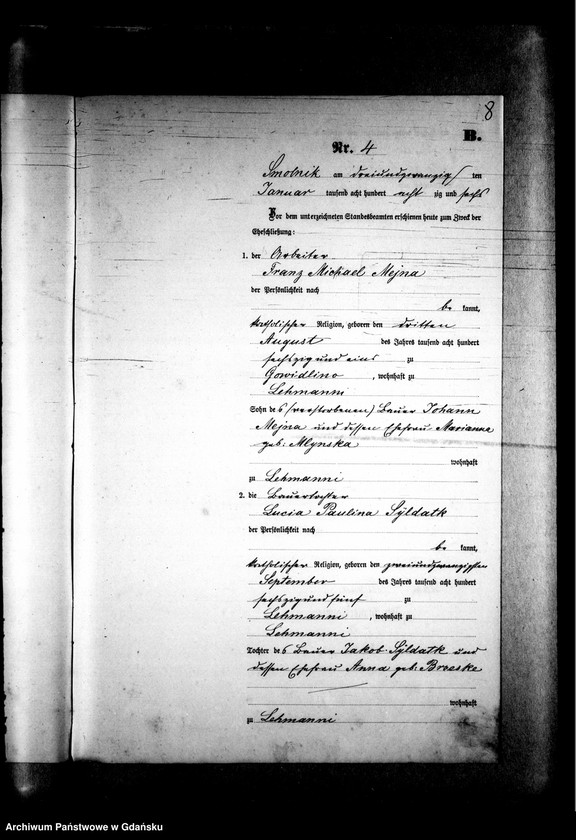 8
B.
Nr. 4
Smolnik am dreiundzwanzig ten
Januar tausend acht hundert acht zig und sechs
Vor dem unterzeichneten Standesbeamten erschienen heute zum Zweck der
Eheschließung:
1. der Arbeiter
Franz Michael Mejna
der Persönlichkeit nach
be kannt,
katholischer Religion, geboren den dritten
August des Jahres tausend acht hundert
sechszig und eins zu
Gowidlino, wohnhaft zu
Lehmanni
Sohn des (verstorbenen) Bauer Johann
Mejna und dessen Ehefrau Marianna
geb: Mlynska
wohnhaft
zu Lehmanni
2. die Bauertochter
Lucia Paulina Syldatk
der Persönlichkeit nach
be kannt,
katholischer Religion, geboren den zweiundzwanzigsten
September des Jahres tausend acht hundert
sechszig und fünf zu
Lehmanni, wohnhaft zu
Lehmanni
Tochter des Bauer Jakob Syldatk und
dessen Ehefrau Anna geb: Breske
wohnhaft
zu Lehmanni
Archiwum Państwowe w Gdańsku